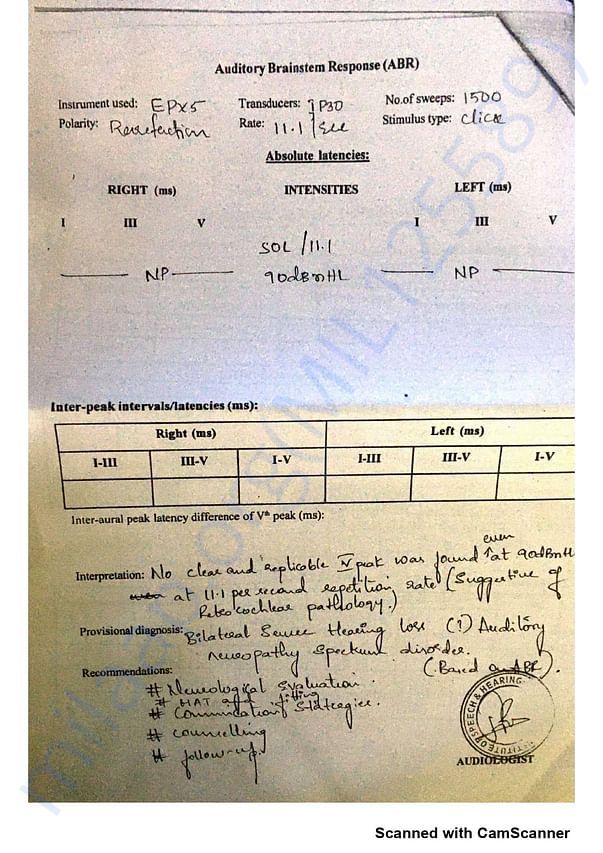 Auditory Brainstem Response (ABR)
Instrument used: EPX5 Transducers: TP30 No.of sweeps: 1500
Polarity: Rarefaction Rate: 11.1/sec Stimulus type: click
Absolute latencies:
RIGHT (ms) INTENSITIES LEFT (ms)
I III V I III V
SOL/11.1
NP 90dBnHL NP
Inter-peak intervals/latencies (ms):
Right (ms) Left (ms)
I-III III-V I-V I-III III-V I-V
Inter-aural peak latency difference of Vth peak (ms):
even
Interpretation: No clear and replicable peak was found at 90dBnHL
at 11.1 per second repetition rate (Suggestive of
Retrocochlear pathology.)
Provisional diagnosis: Bilateral Severe Hearing loss (?) Auditory
neuropathy spectrum disorder.
(Based on ABR).
Recommendations:
# Neurological evaluation.
# HAT and fitting
# Communication Strategies.
# counselling
# follow-up.
SPEECH & HEARING
AUDIOLOGIST
Scanned with CamScanner